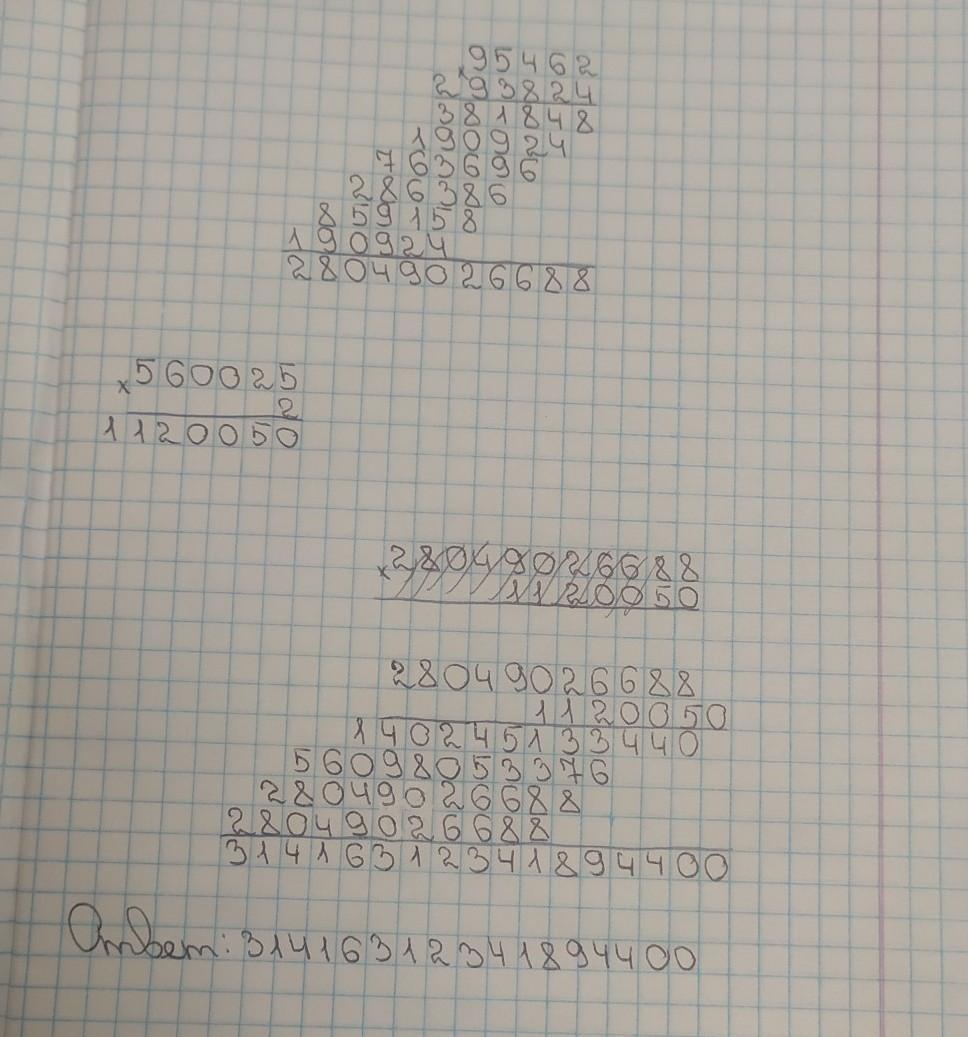 ×95462
293824
381848
190924
763696
286386
859158
190924
28049026688
×560025
2
1120050
×28049026688
1120050
28049026688
1120050
1402451333440
56098053376
28049026688
28049026688
31416312341894400
Ответ: 31416312341894400